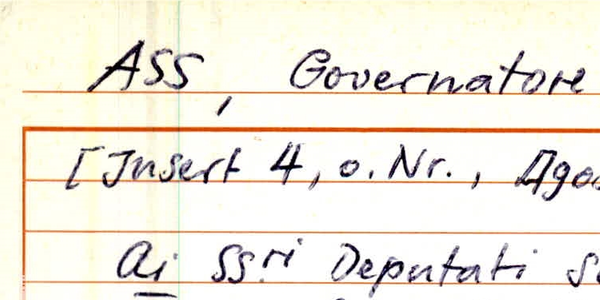 ASS, Governatore
[Insert 4, o. Nr., Agos
Ai SS.ri Deputati s